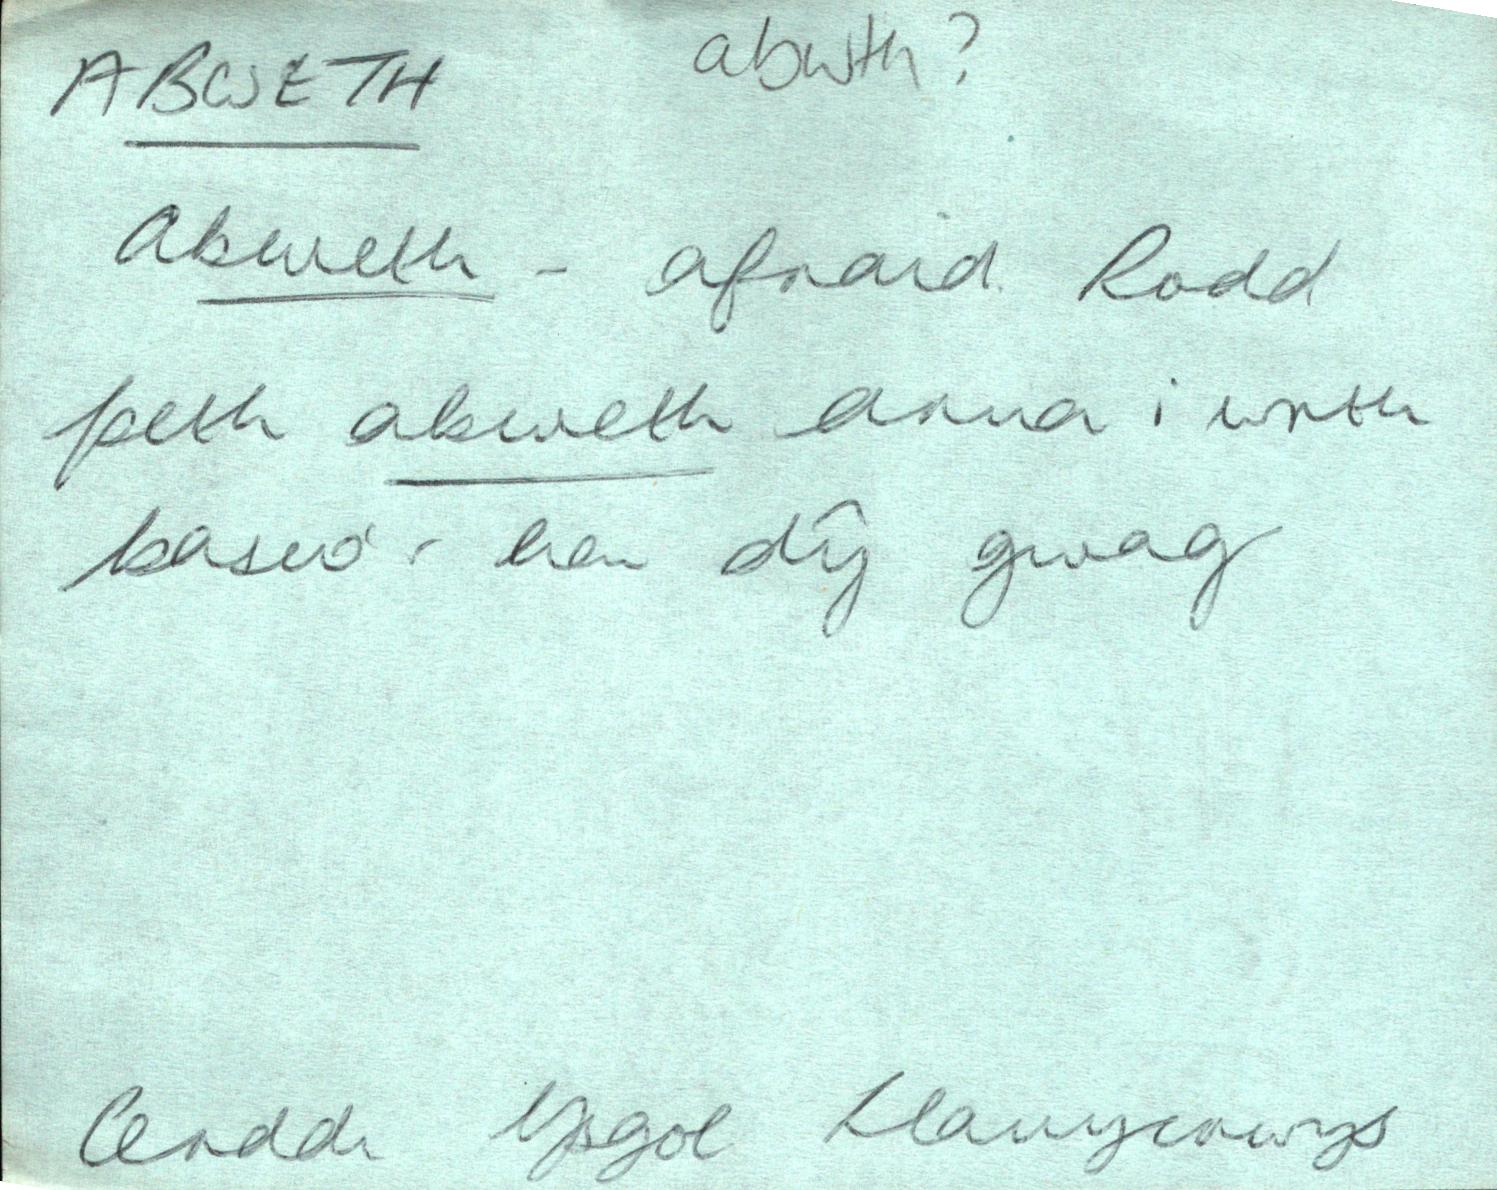 ABWETH abwth?
Abweth - afraid. Rodd
peth abweth arna i wrth
baso'r hen dŷ gwag
Cerddi Ysgol Llanycrwys